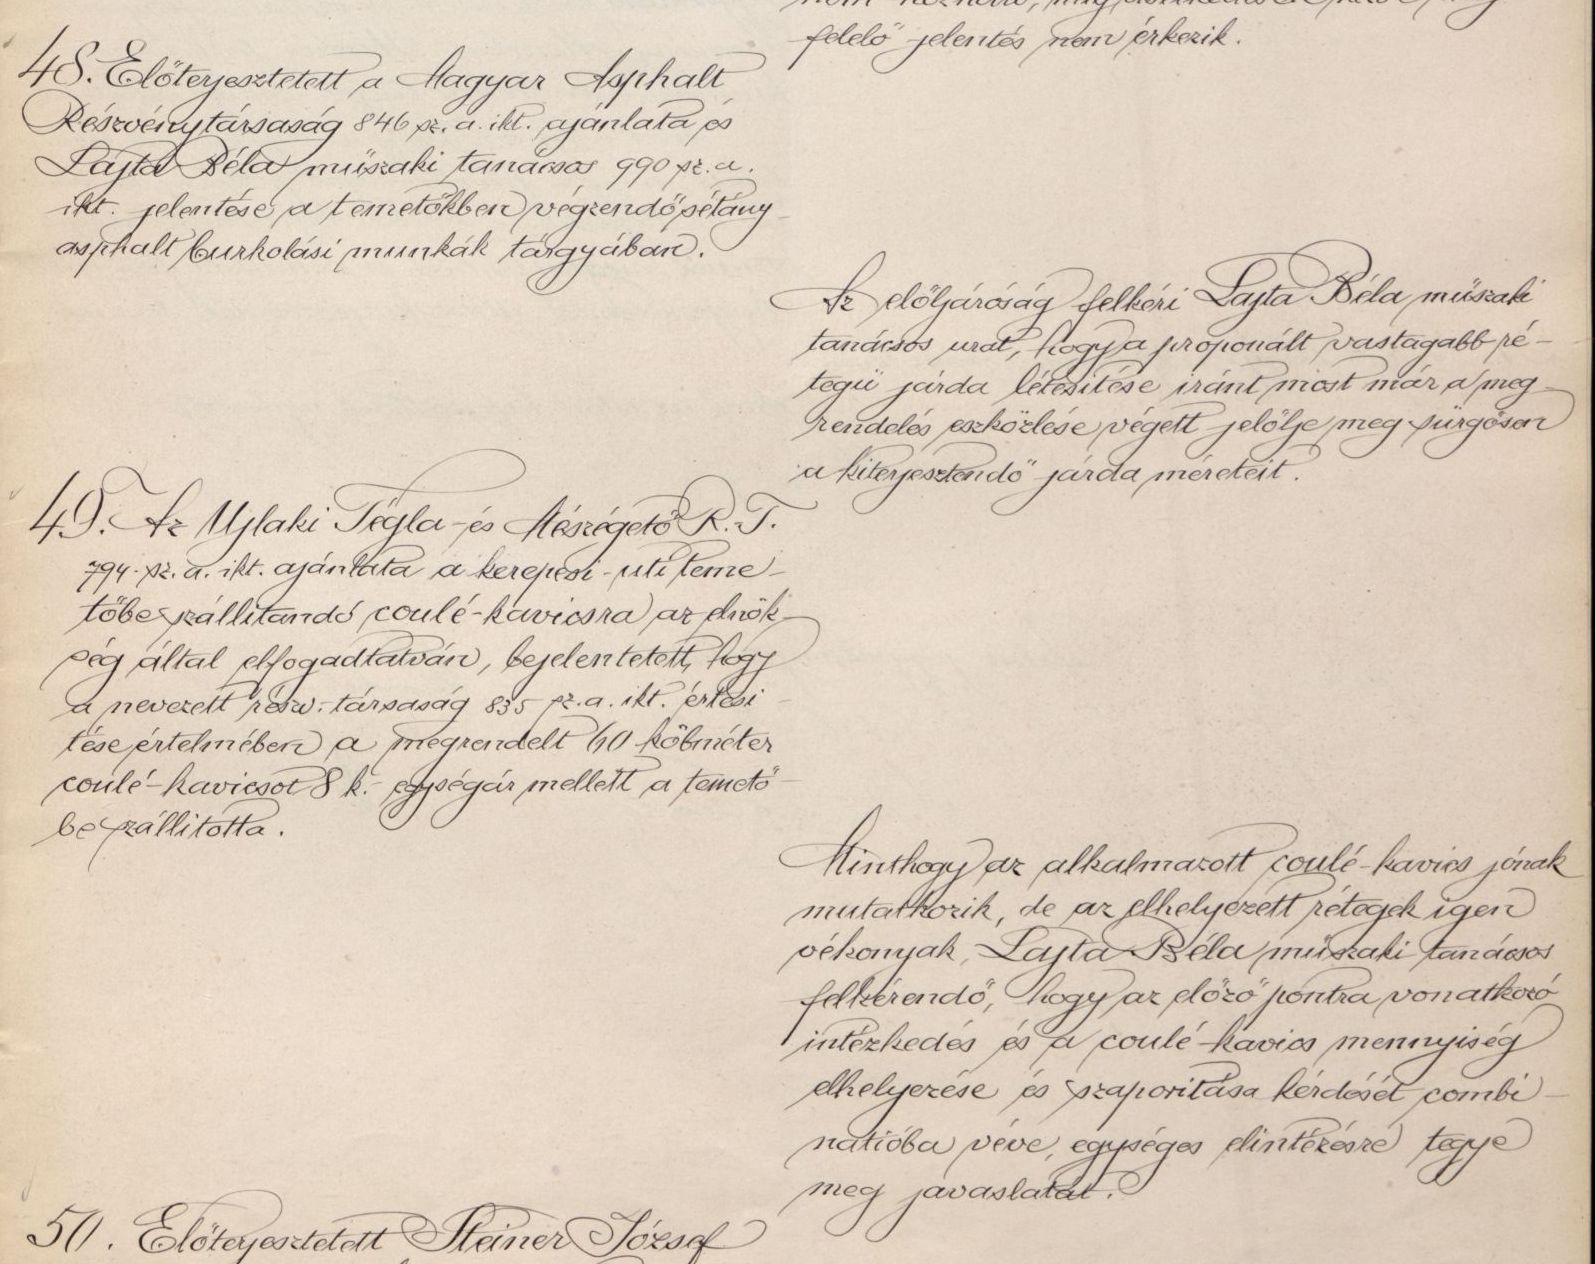 felelő jelentés nem érkezik.
48. Előterjesztetett a Magyar Asphalt
Részvénytársaság 846 sz. a. ikt. ajánlata és
Lajta Béla műszaki tanácsos 990 sz. a.
ikt. jelentése a temetőkben végzendő sétány
asphalt burkolási munkák tárgyában.
Az előljáróság felkéri Lajta Béla műszaki
tanácsos urat, hogy a proponált vastagabb ré-
tegü járda létesitése iránt most már a meg-
rendelés eszközlése végett jelölje meg sürgősen
a kiterjesztendő járda méreteit.
49. Az Ujlaki Tégla- és Mészégető R. T.
794. sz. a. ikt. ajánlata a kerepesi-uti teme-
tőbe szállitandó coulé-kavicsra az elnök-
ség által elfogadtatván, bejelentetett, hogy
a nevezett részv. társaság 835 sz. a. ikt. értesi-
tése értelmében a megrendelt 40 köbméter
coulé-kavicsot 8 k.- egységár mellett a temető-
be szállitotta.
Minthogy az alkalmazott coulé-kavics jónak
mutatkozik, de az elhelyezett rétegek igen
vékonyak, Lajta Béla műszaki tanácsos
felkérendő, hogy az előző pontra vonatkozó
intézkedés és a coulé-kavics mennyiség
elhelyezése és szaporitása kérdését combi-
natióba véve, egységes elintézésre tegye
meg javaslatát.
50. Előterjesztetett Steiner József